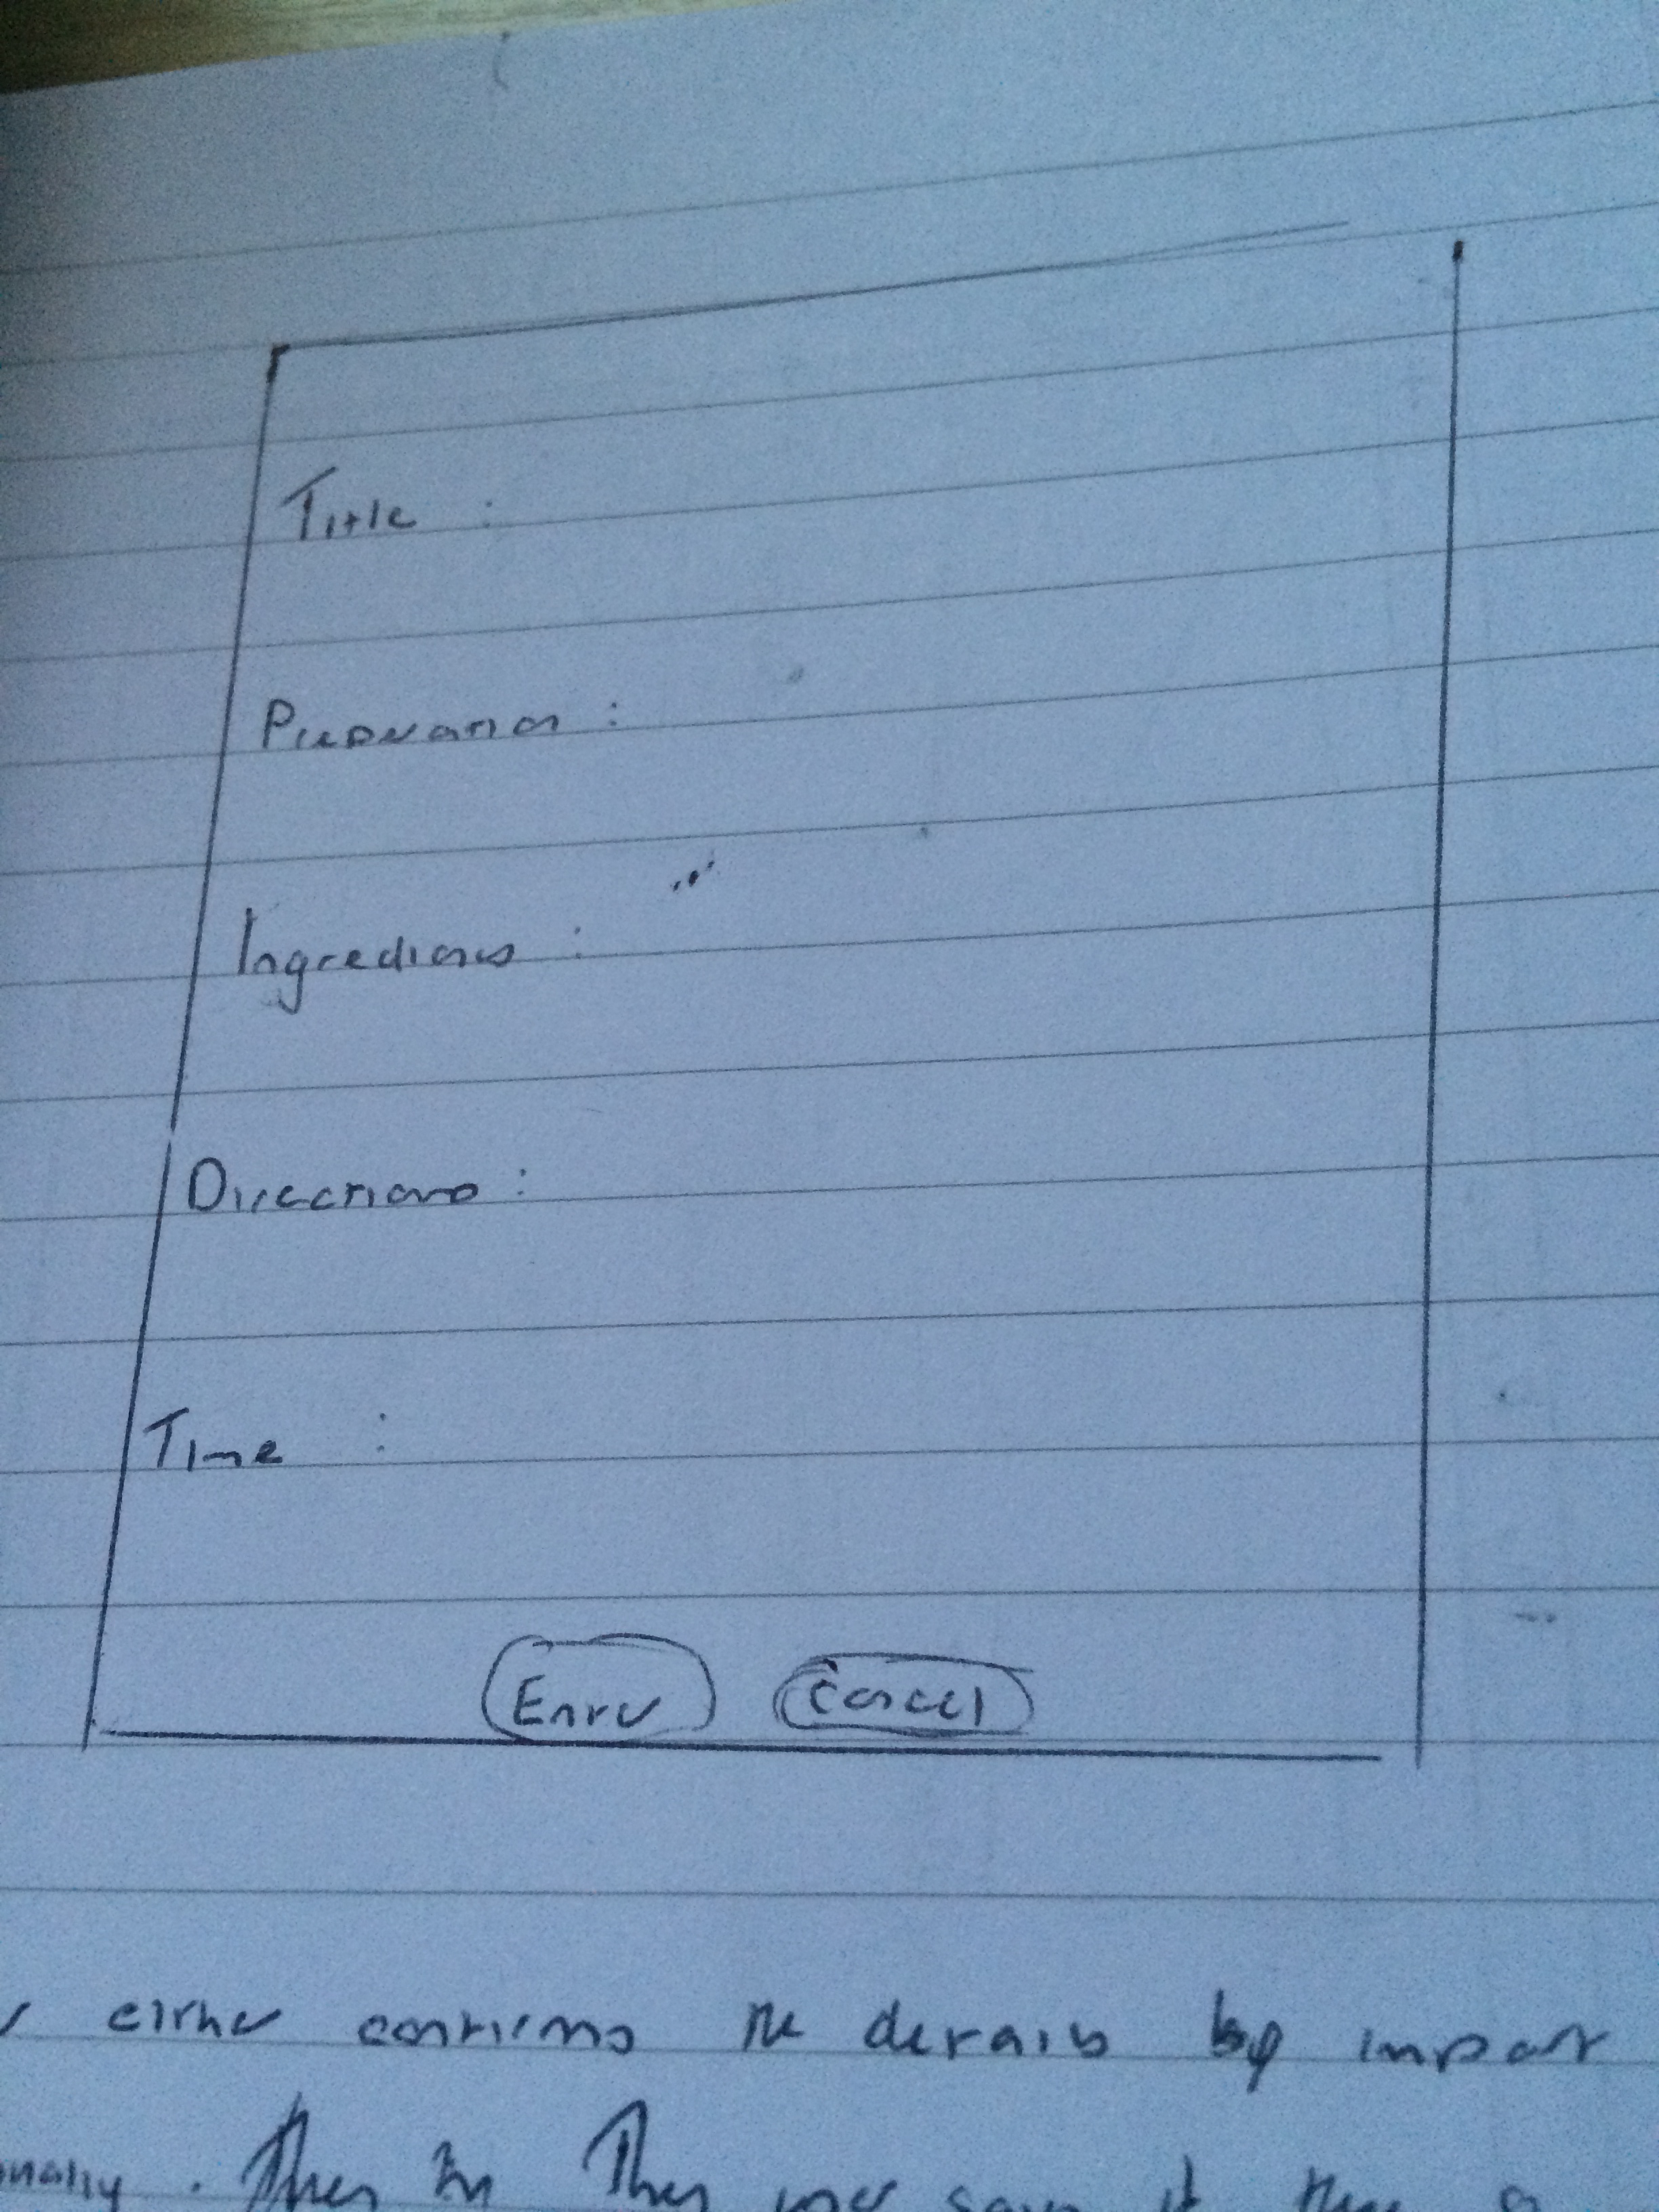 Title :
Preparation :
Ingredients :
Directions :
Time :
Enter Cancel
either confirms the details by import
. Then